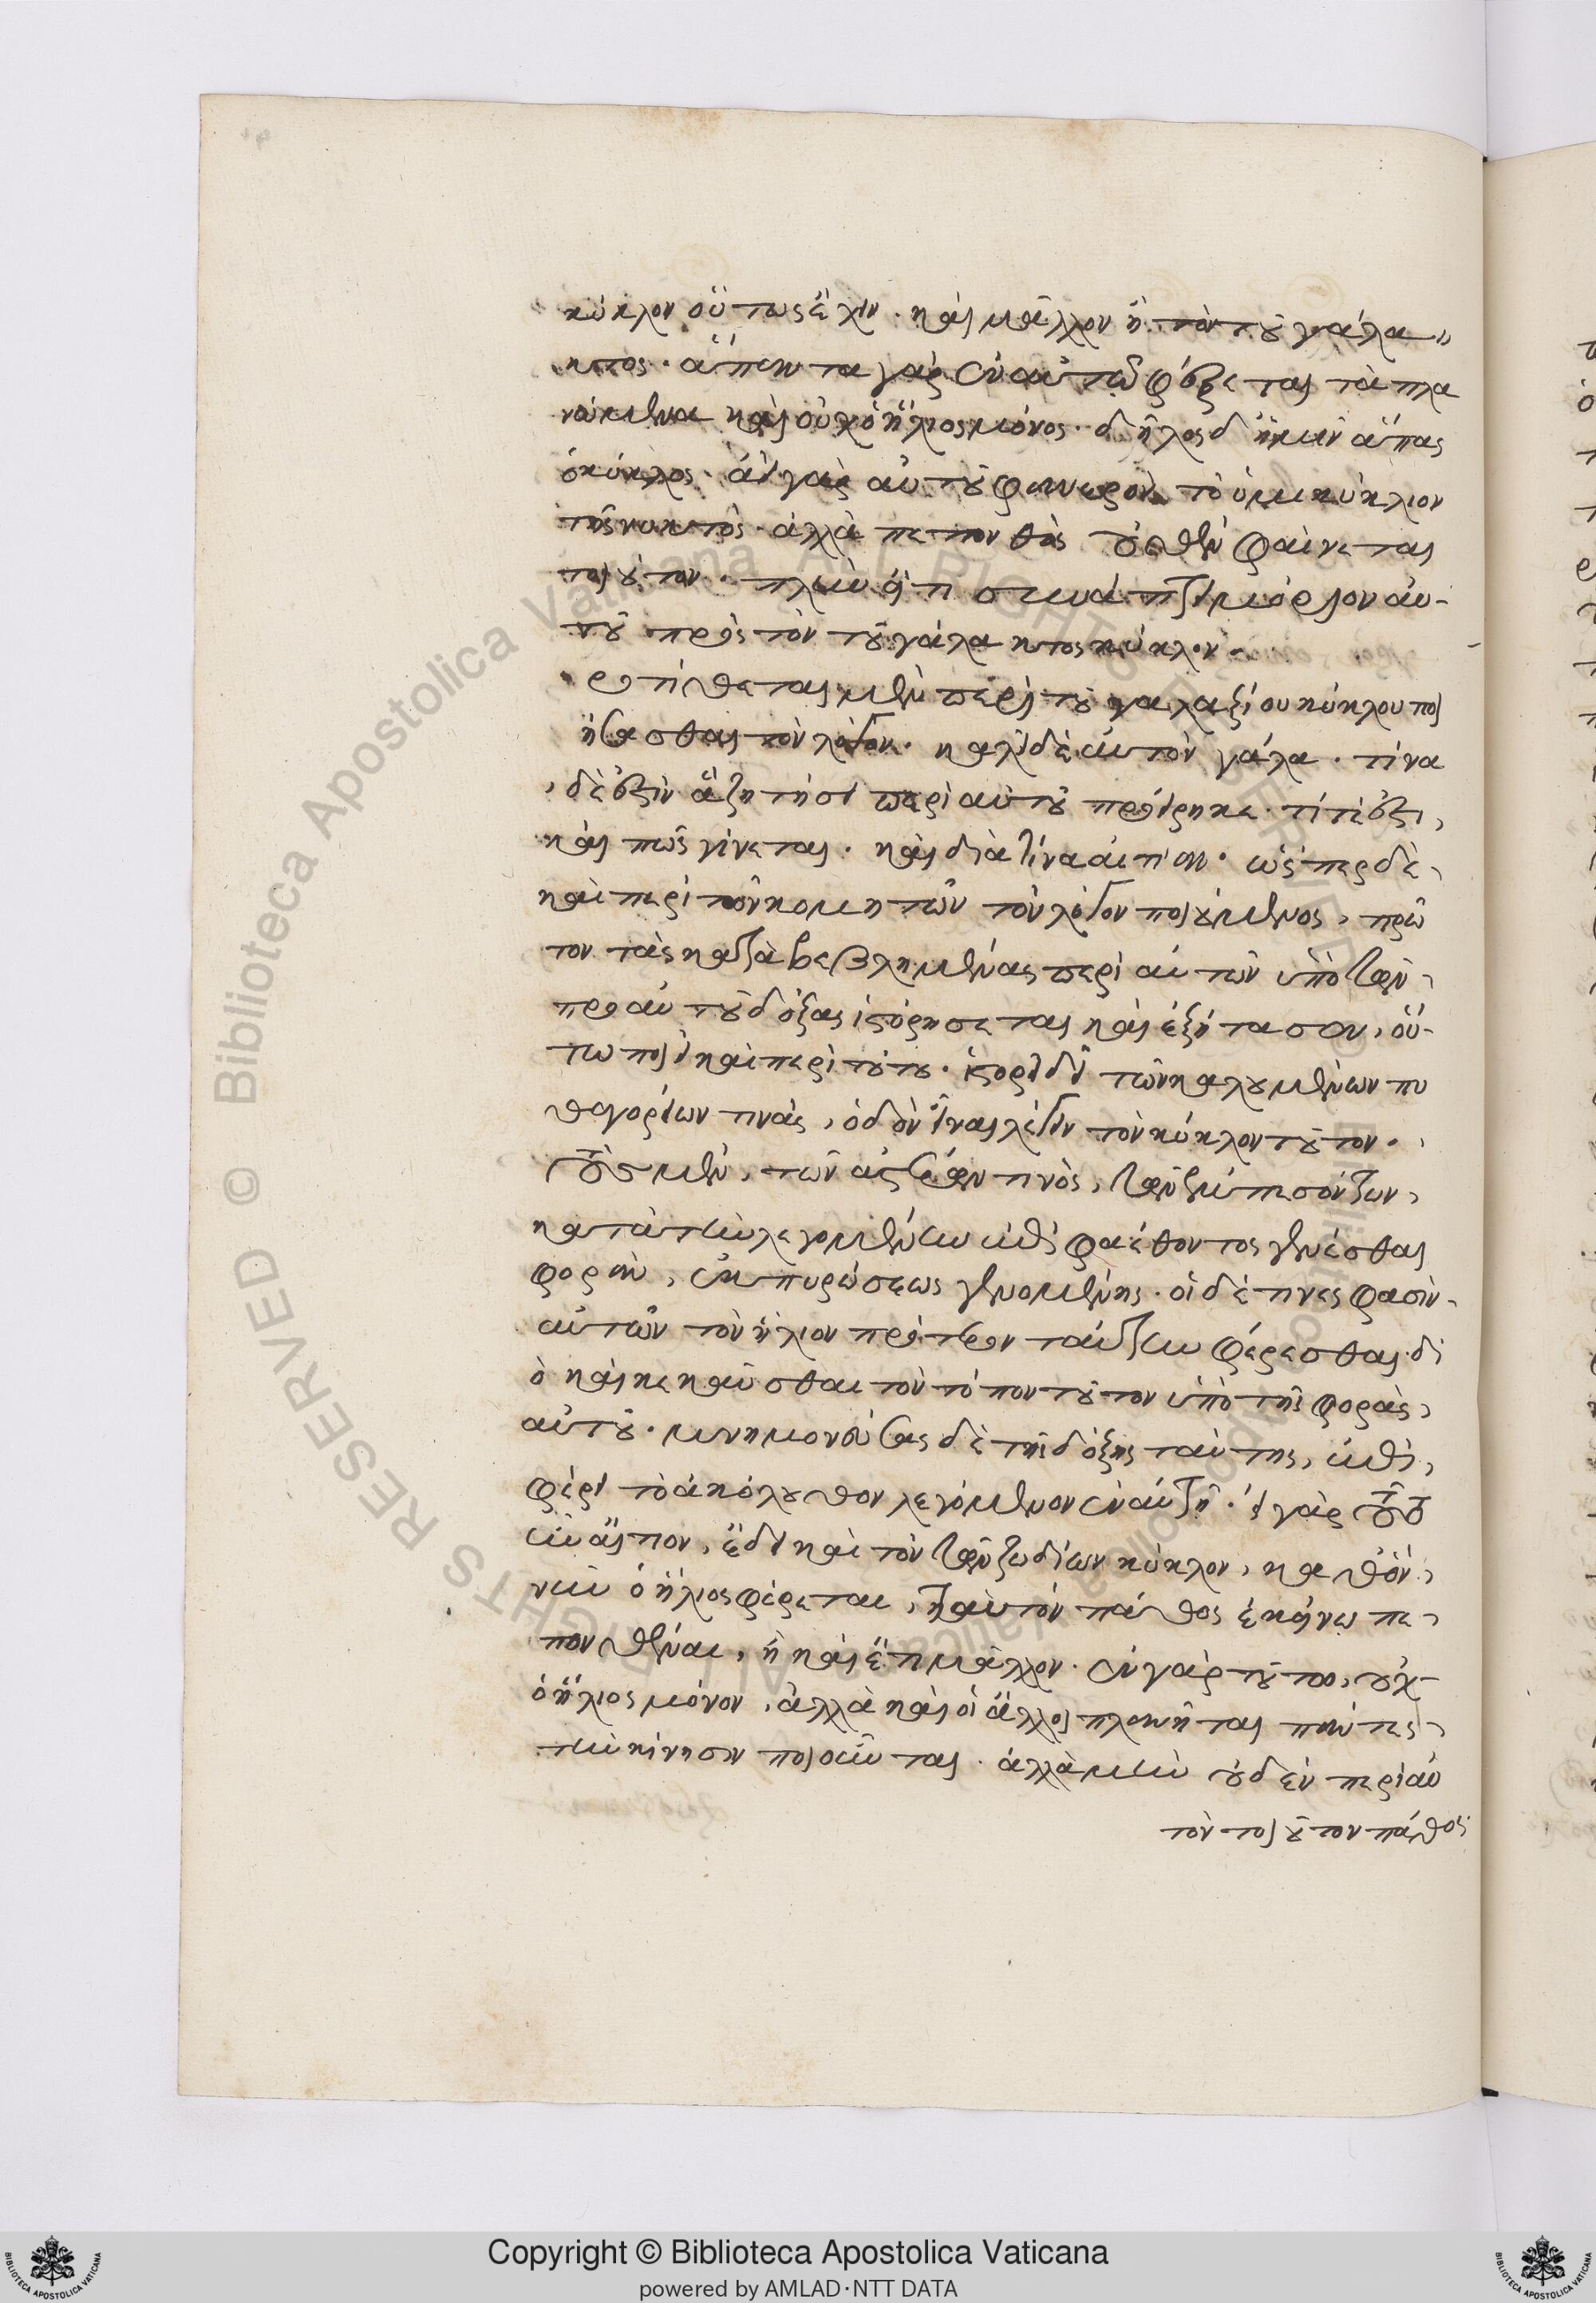 κύκλον οὕτως ἔχειν. καὶ μᾶλλον ἢ τὸν τοῦ γάλα-
κτος. ἅπαντα γὰρ ἐν αὐτῷ φέρεται τὰ πλα
νώμενα καὶ οὐχ ὁ ἥλιος μόνος. δῆλος δ' ἡμῖν ἅπας
ὁ κύκλος. ἀεὶ γὰρ αὐτοῦ φανερὸν τὸ ἡμικύκλιον
τῆς νυκτός. ἀλλὰ πεπονθὸς οὐθὲν φαίνεται
τοιοῦτον. πλὴν εἴ τι συνάπτει μόριον αὐ-
τοῦ πρὸς τὸν τοῦ γάλακτος κύκλον.
ροτίθεται μὲν περὶ τοῦ γαλαξίου κύκλου ποι
ήσασθαι τὸν λόγον. καλεῖ δὲ αὐτὸν γάλα. τίνα
δέ ἐστιν ἃ ζητήσει περὶ αὐτοῦ προείρηκε. τί τέ ἐστι,
καὶ πῶς γίνεται. καὶ διὰ τίνα αἰτίαν. ὥσπερ δὲ
καὶ περὶ τῶν κομητῶν τὸν λόγον ποιούμενος, πρῶ
τον τὰς καταβεβλημένας περὶ αὐτῶν ὑπὸ τῶν
πρὸ αὐτοῦ δόξας ἱστόρησέ τε καὶ ἐξήτασεν, οὕ-
τω ποιεῖ καὶ περὶ τούτου. ἱστορεῖ δὴ τῶν καλουμένων πυ
θαγορείων τινάς, ὁδὸν εἶναι λέγειν τὸν κύκλον τοῦτον.
τοὺς μὲν, τῶν ἀστέρων τινός, τῶν ἐκπεσόντων,
κατὰ τὴν λεγομένην ἐπὶ φαέθοντος γενέσθαι
φοράν, ἐκπυρώσεως γενομένης. οἱ δέ τινες φασὶν
αὐτῶν τὸν ἥλιον πρότερον ταύτην φέρεσθαι. δι
ὸ καὶ κεκαῦσθαι τὸν τόπον τοῦτον ὑπὸ τῆς φορᾶς
αὐτοῦ. μνημονεύσας δὲ τῆς δόξης ταύτης, ἐπι
φέρει τὸ ἀκόλουθον λεγόμενον ἐν αὐτῇ. εἰ γὰρ τοῦτο
ἦν αἴτιον, ἔδει καὶ τὸν τῶν ζωδίων κύκλον, καθ' ὃν
νῦν ὁ ἥλιος φέρεται, ταὐτὸν πάθος ἐκείνῳ πε-
πονθέναι, ἢ καὶ ἔτι μᾶλλον. ἐν γὰρ τούτῳ, οὐχ
ὁ ἥλιος μόνον, ἀλλὰ καὶ οἱ ἄλλοι πλανῆται πάντες
τὴν κίνησιν ποιοῦνται. ἀλλὰ μὴν οὐδὲν περὶ αὐ
τὸν τοιοῦτον πάθος